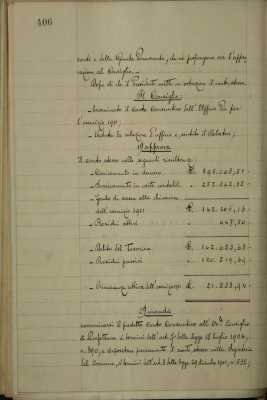 406
conti e della Giunta Provinciale, che si propongono per l'appro-
vazione al Consiglio. -
Dopo di che il Presidente mette in votazione il conto stesso.
Il Consiglio;
- Esaminato il Conto Consuntivo dell'Ufficio Pio per
l'esercizio 1911;
- Veduta la relazione d'ufficio e sentito il Relatore;
Approva
il conto stesso nelle seguenti risultanze:
- Caricamento in denaro £. 395.048,51 -
- Scaricamento in conto contabili " 252.842,38 -
- fondo di cassa alla chiusura
dell'esercizio 1911 £. 142.206,13 -
- Residui attivi " 447,50 -
- Debito del Tesoriere £. 142.653,63 -
- Residui passivi " 120.819,69 -
- Rimanenza attiva dell'esercizio 1911 £. 21.833,94 -
E manda
comunicarsi il predetto Conto Consuntivo all'On.le Consiglio
di Prefettura a termini dell'art. 7 della legge 18 luglio 1904,
n. 390, e depositare pienamente il conto stesso nella Segreteria
del Comune, a termini dell'art. 3 della legge 29 dicembre 1901, n. 535;